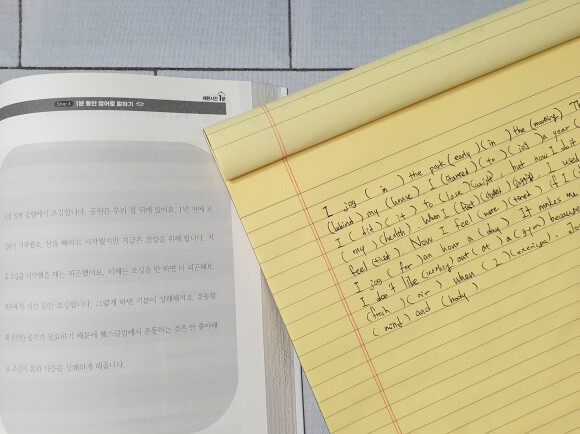 Step 4 1분 동안 영어로 말하기
일찍 공원에서 조깅합니다. 공원은 우리 집 뒤에 있어요. 1년 전에 조
시작했고, 살을 빼려고 시작했지만 지금은 건강을 위해 합니다. 처
음 조깅을 시작했을 때는 피곤했어요, 이제는 조깅을 안 하면 더 피곤해요.
하루에 한 시간 동안 조깅합니다. 그렇게 하면 기분이 상쾌해져요. 운동할
때 신선한 공기가 필요하기 때문에 헬스클럽에서 운동하는 것은 안 좋아해
요. 조깅이 몸과 마음을 상쾌하게 해줍니다.
I jog ( in ) the park (early) ( in ) the (morning). Th
(behind) my (house) I (started) ( to ) ( jog ) a year (
I ( did ) ( it ) to (lose) (weight), but now I do it
( my ) (health). When I (first) (started) I used
feel (tired) Now I feel (more) (tired) if I (
I jog (for) an hour a (day). It makes me
I don't like (working) out (at) a (gym) because
(fresh) (air) when ( I ) (exercise). Jo
(mind) and (body)